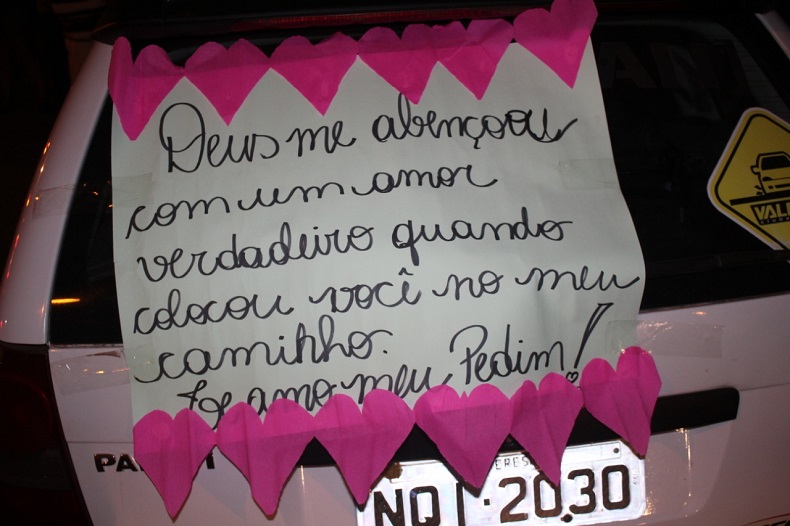 Deus me abençoou
com um amor
verdadeiro quando
colocou você no meu
caminho.
Te amo meu Pedim!
VALE
PA
NQI·2030